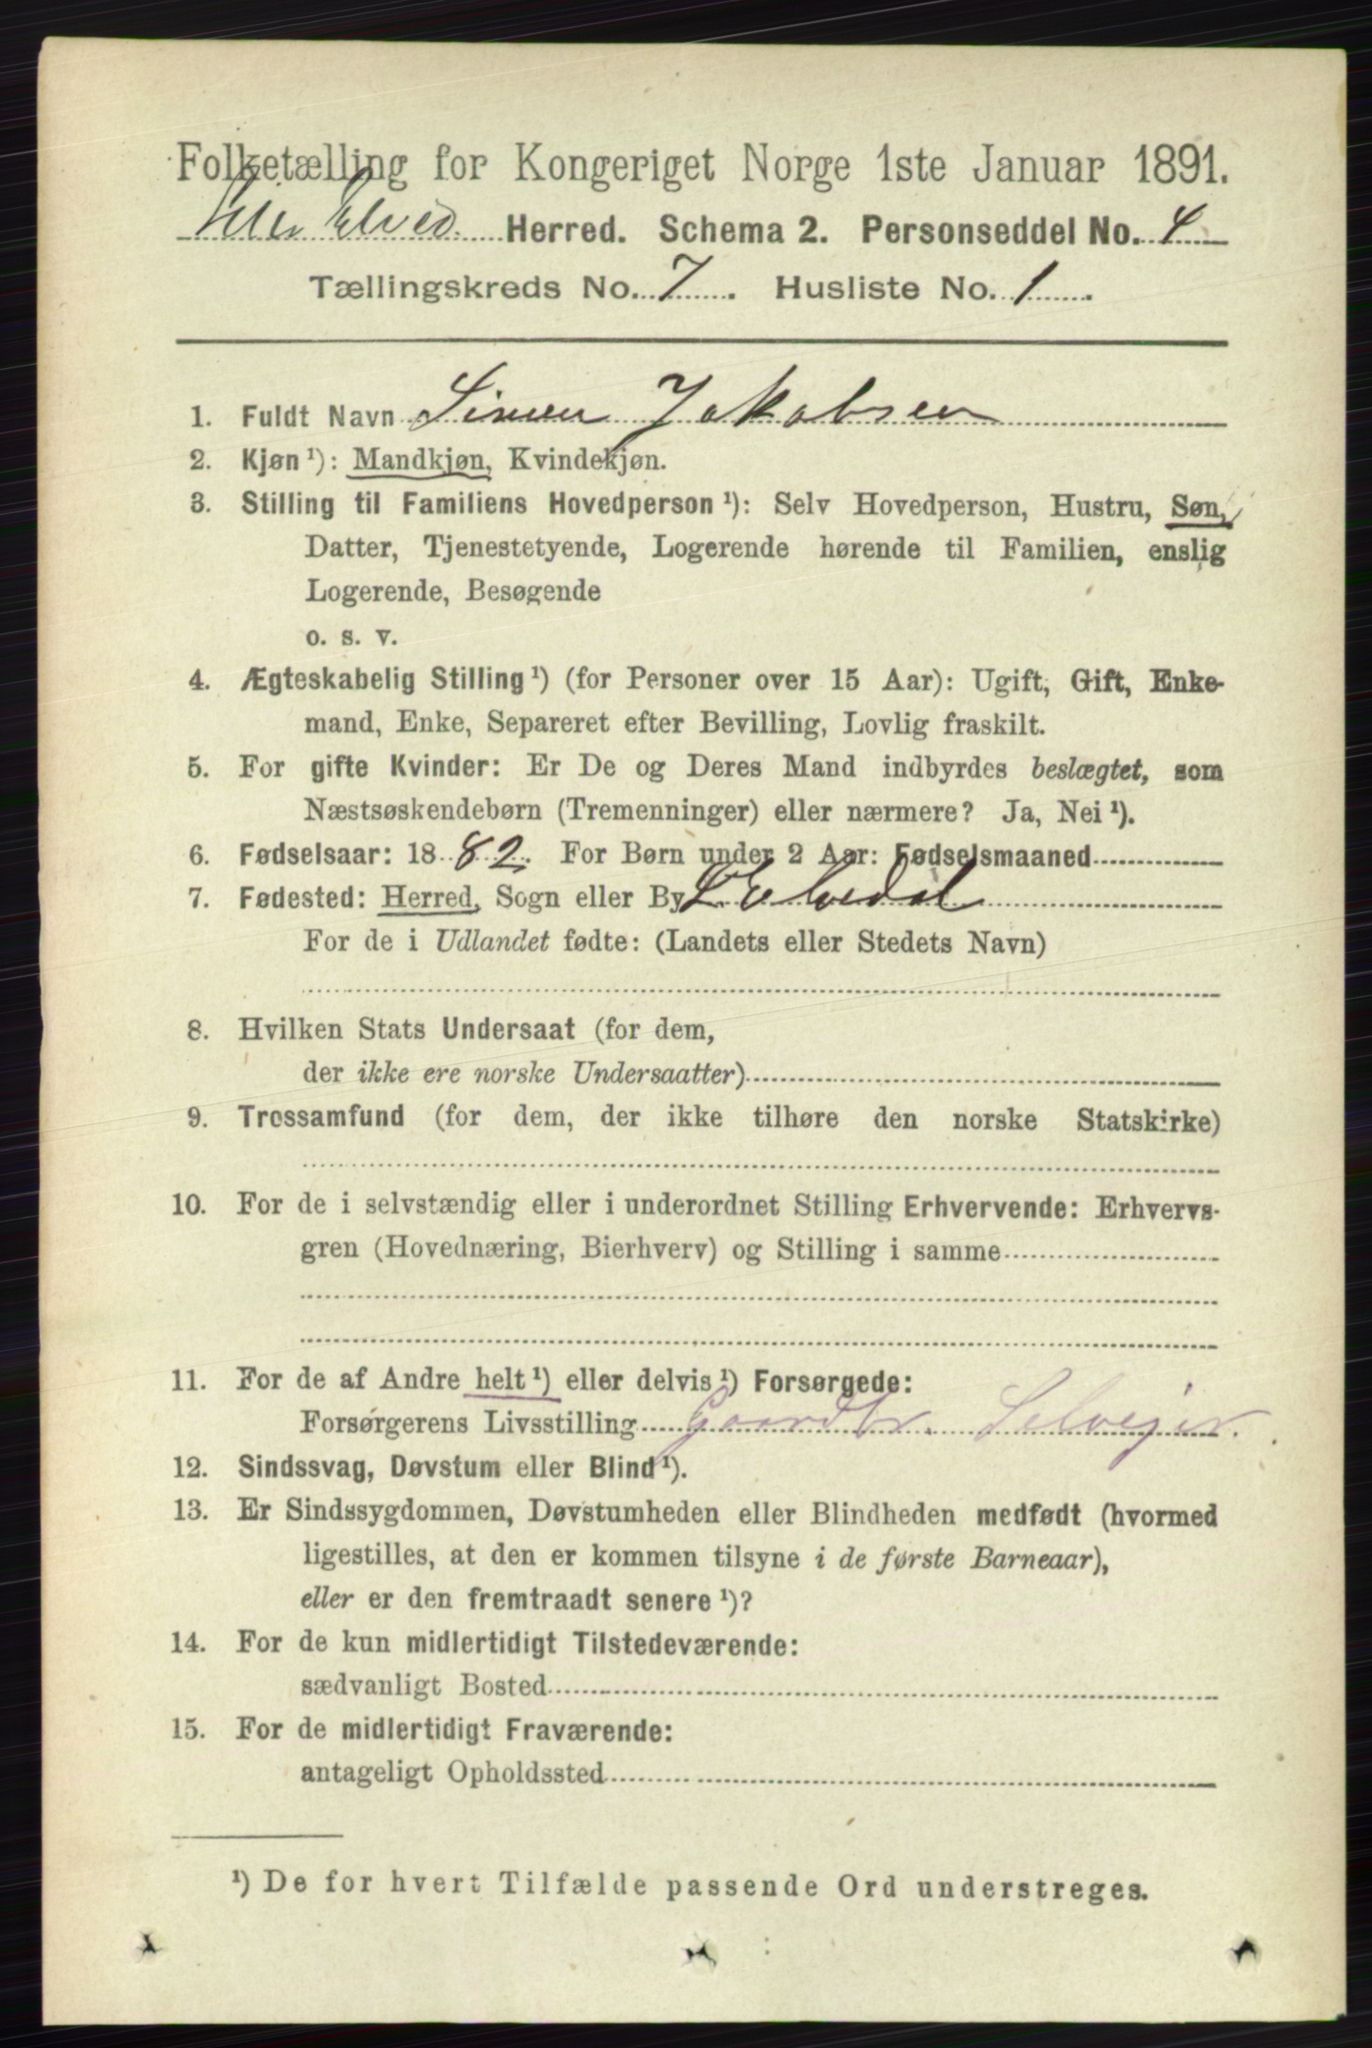 Folketælling for Kongeriget Norge 1ste Januar 1891.
Herred. Schema 2. Personseddel No. 4
Tællingskreds No. 7. Husliste No. 1.
1. Fuldt Navn Simen Jakobsen
2. Kjøn ¹): Mandkjøn, Kvindekjøn.
3. Stilling til Familiens Hovedperson ¹): Selv Hovedperson, Hustru, Søn,
Datter, Tjenestetyende, Logerende hørende til Familien, enslig
Logerende, Besøgende
o. s. v.
4. Ægteskabelig Stilling ¹) (for Personer over 15 Aar): Ugift, Gift, Enke-
mand, Enke, Separeret efter Bevilling, Lovlig fraskilt.
5. For gifte Kvinder: Er De og Deres Mand indbyrdes beslægtet, som
Næstsøskendebørn (Tremenninger) eller nærmere? Ja, Nei ¹).
6. Fødselsaar: 1882. For Børn under 2 Aar: Fødselsmaaned
7. Fødested: Herred, Sogn eller By L Elvedal
For de i Udlandet fødte: (Landets eller Stedets Navn)
8. Hvilken Stats Undersaat (for dem,
der ikke ere norske Undersaatter)
9. Trossamfund (for dem, der ikke tilhøre den norske Statskirke)
10. For de i selvstændig eller i underordnet Stilling Erhvervende: Erhvervs-
gren (Hovednæring, Bierhverv) og Stilling i samme
11. For de af Andre helt ¹) eller delvis ¹) Forsørgede:
Forsørgerens Livsstilling Gaardbr. Selveier.
12. Sindssvag, Døvstum eller Blind ¹).
13. Er Sindssygdommen, Døvstumheden eller Blindheden medfødt (hvormed
ligestilles, at den er kommen tilsyne i de første Barneaar),
eller er den fremtraadt senere ¹)?
14. For de kun midlertidigt Tilstedeværende:
sædvanligt Bosted
15. For de midlertidigt Fraværende:
antageligt Opholdssted
¹) De for hvert Tilfælde passende Ord understreges.